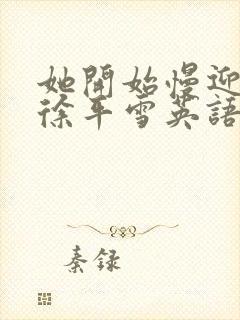 她開始慢迎
徐平雪英語
秦録